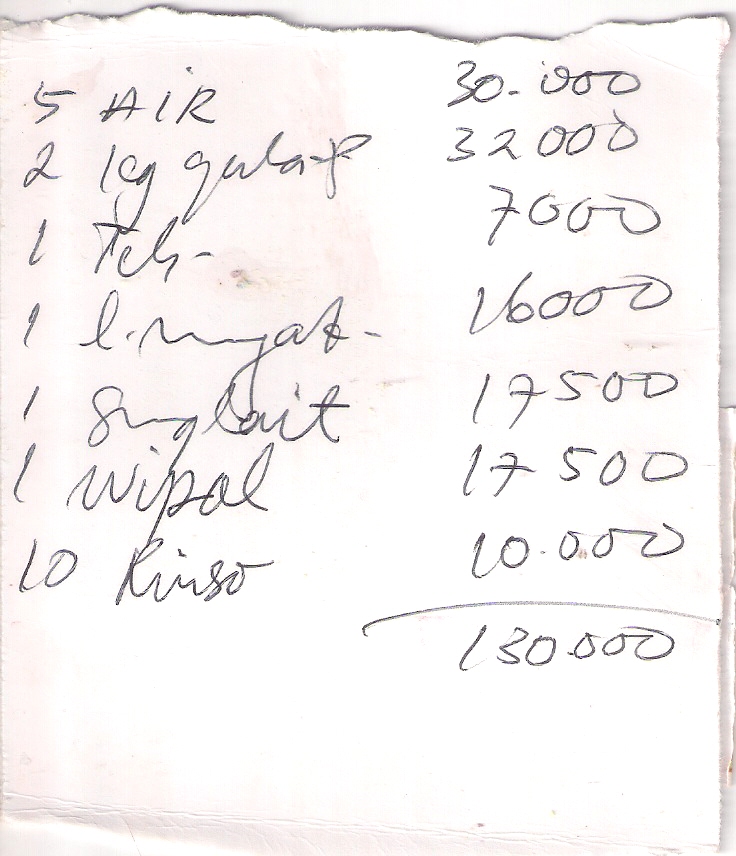 5 AIR 30.000
2 kg gula-P 32000
1 Teh- 7000
1 l. 16000
1 Sunlait 17500
1 Wipol 17500
10 Rinso 10.000
130.000